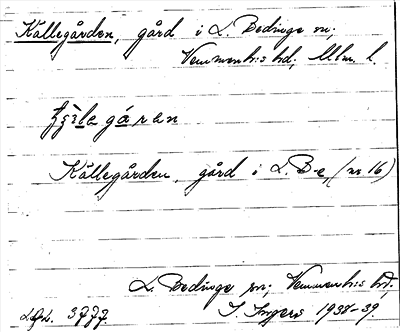 Källegården, gård i L. Bedinge sn;
Vemmenhis hd, Mlm. l.
gården
Källegården, gård i L. B-e, (nr 16)
L. Bedinge sn; Vemmenhis hd;
I. Ingers 1938-39.
3777.